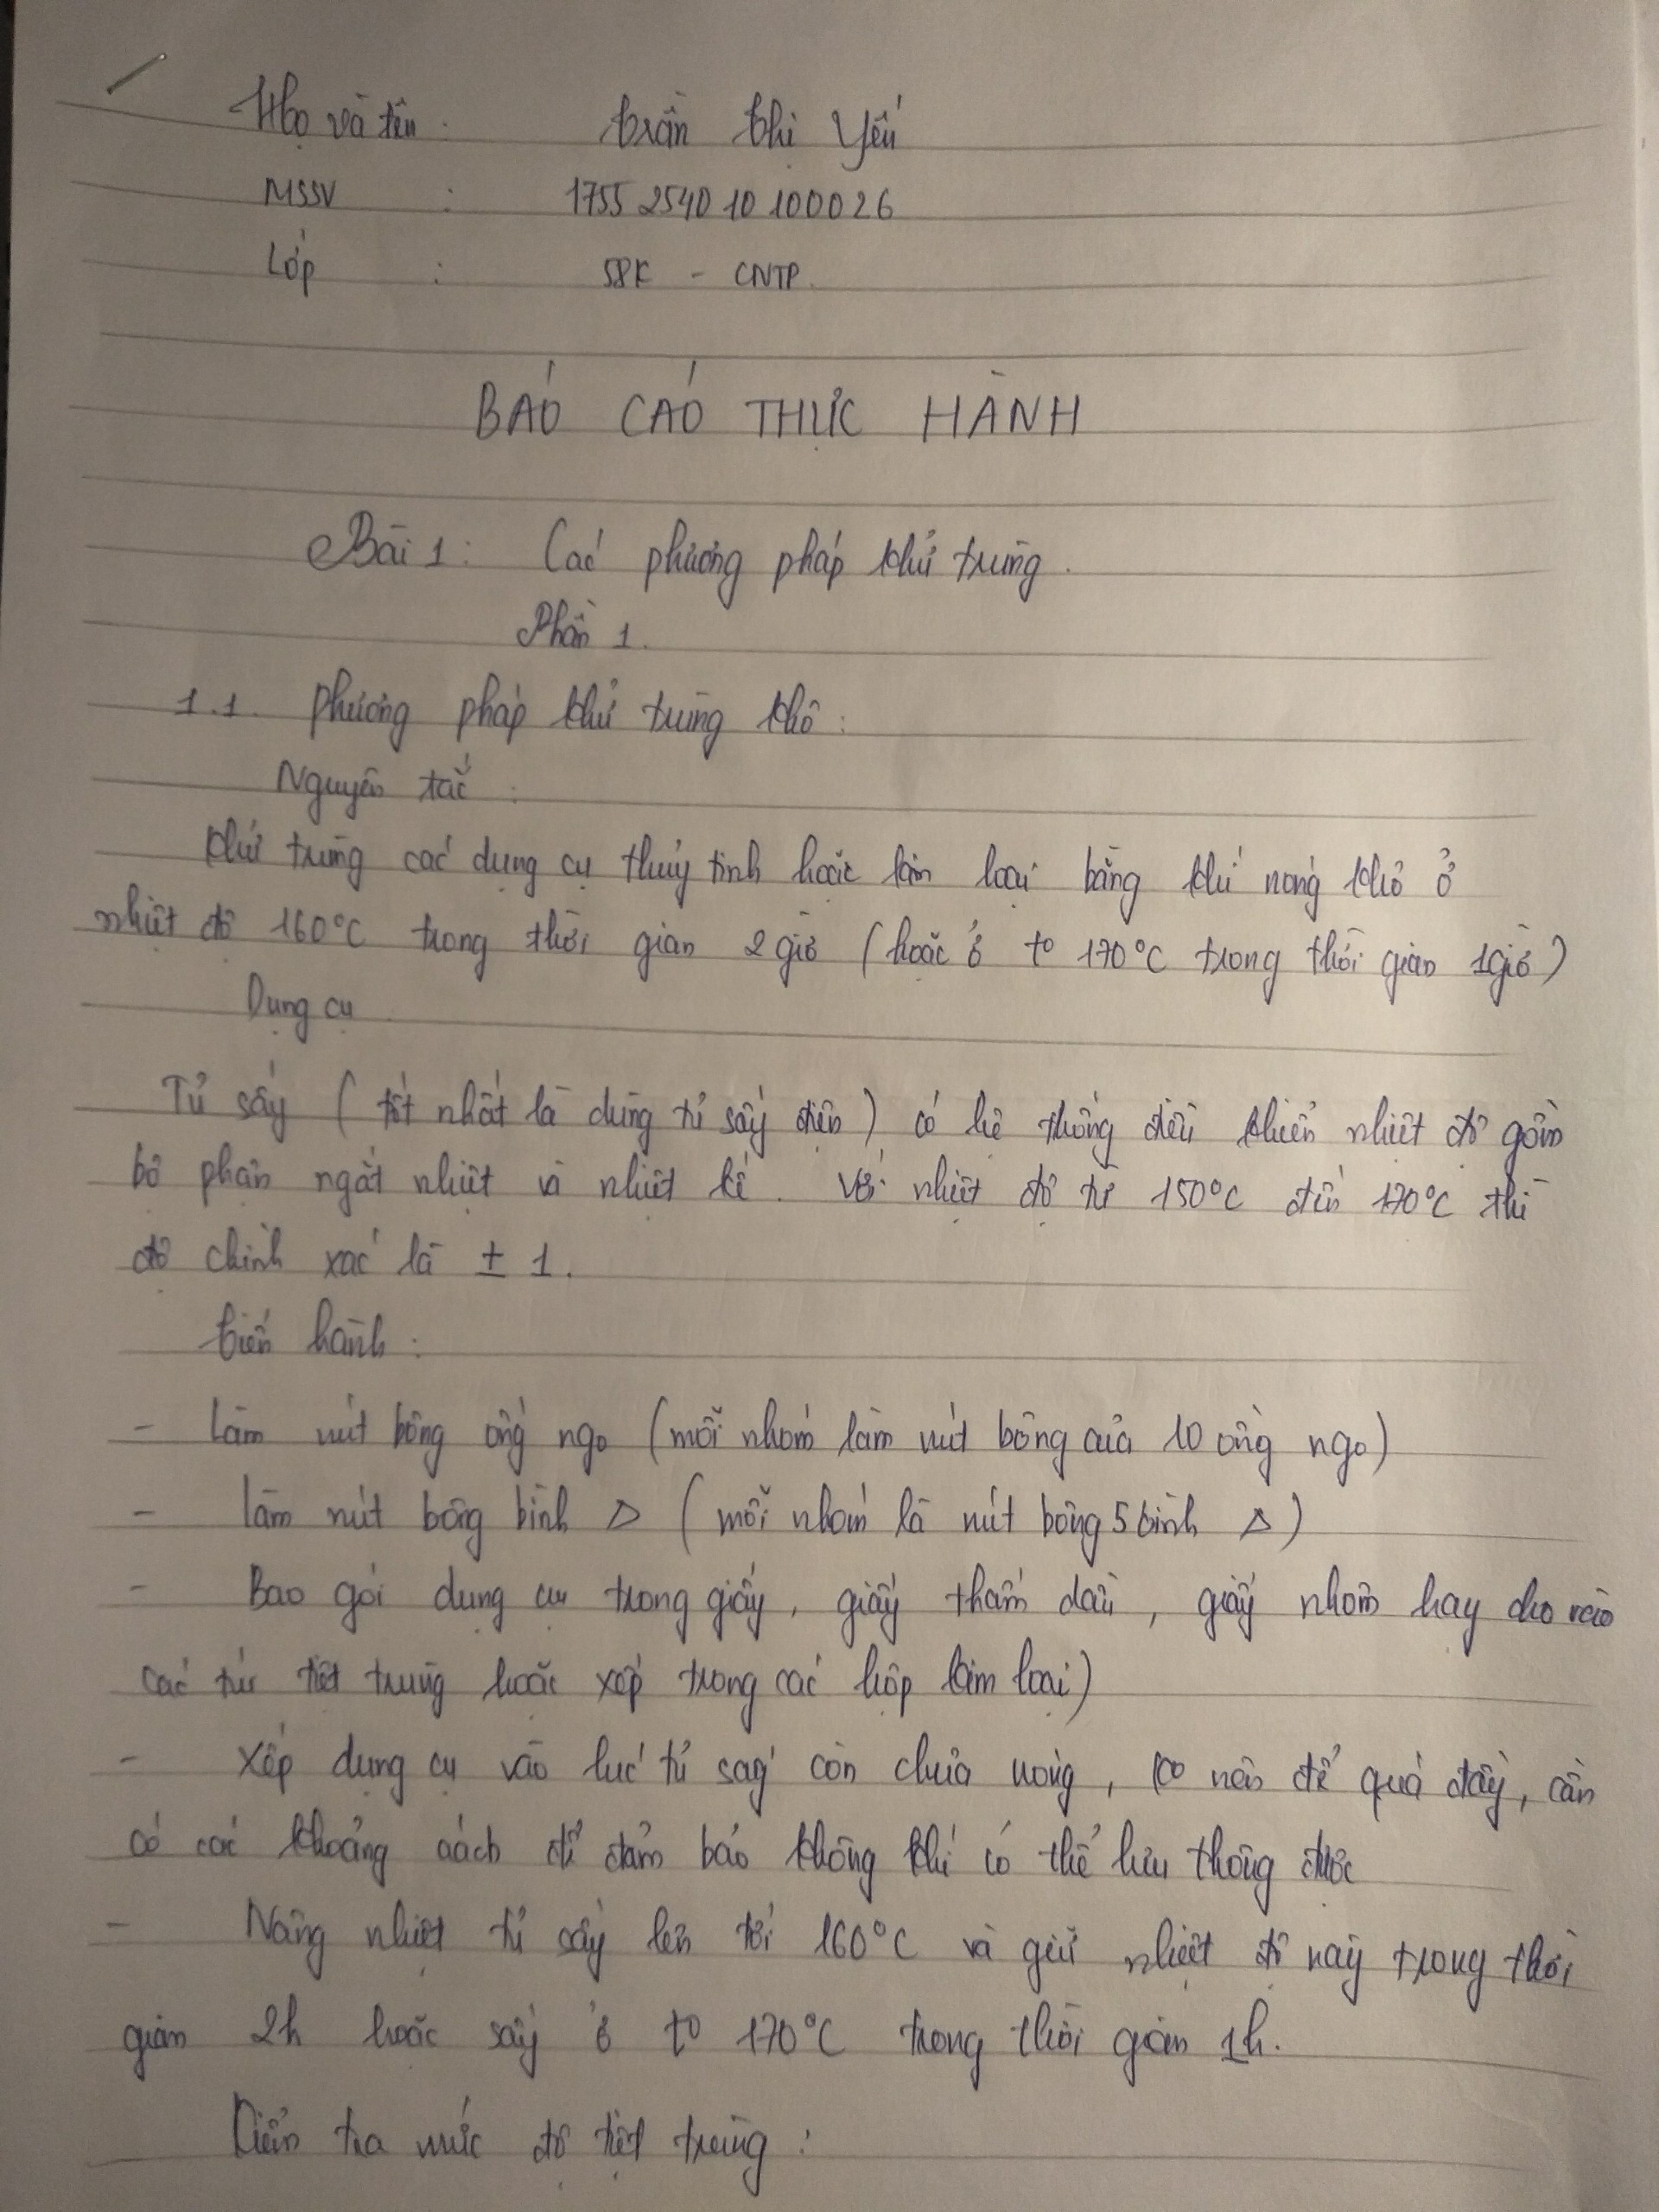 Họ và tên : Trần Thị Yến
MSSV : 1755 2540 10 100026
Lớp : 58K - CNTP.
BÁO CÁO THỰC HÀNH
Bài 1: Các phương pháp khử trùng.
Phần 1.
1.1. Phương pháp khử trùng khô:
Nguyên tắc :
Khử trùng các dụng cụ thủy tinh hoặc kim loại bằng khí nóng khô ở
nhiệt độ 160°C trong thời gian 2 giờ (hoặc ở t° 170°C trong thời gian 1giờ)
Dụng cụ
Tủ sấy (tốt nhất là dùng tủ sấy điện) có hệ thống điều khiển nhiệt độ gồm
bộ phận ngắt nhiệt và nhiệt kế. Với nhiệt độ từ 150°C đến 170°C thì
độ chính xác là ± 1.
Tiến hành :
- Làm nút bông ống ngo (mỗi nhóm làm nút bông của 10 ống ngo)
- làm nút bông bình △ (mỗi nhóm là nút bông 5 bình △)
- Bao gói dụng cụ trong giấy, giấy thấm dầu, giấy nhôm hay cho vào
các túi tiệt trùng hoặc xếp trong các hộp kim loại)
- Xếp dụng cụ vào lúc tủ sấy còn chưa nóng, ko nên để quá đầy, cần
có các khoảng cách để đảm bảo không khí có thể lưu thông được
- Nâng nhiệt tủ sấy lên tới 160°C và giữ nhiệt độ này trong thời
gian 2h hoặc sấy ở t° 170°C trong thời gian 1h.
Kiểm tra mức độ tiệt trùng :